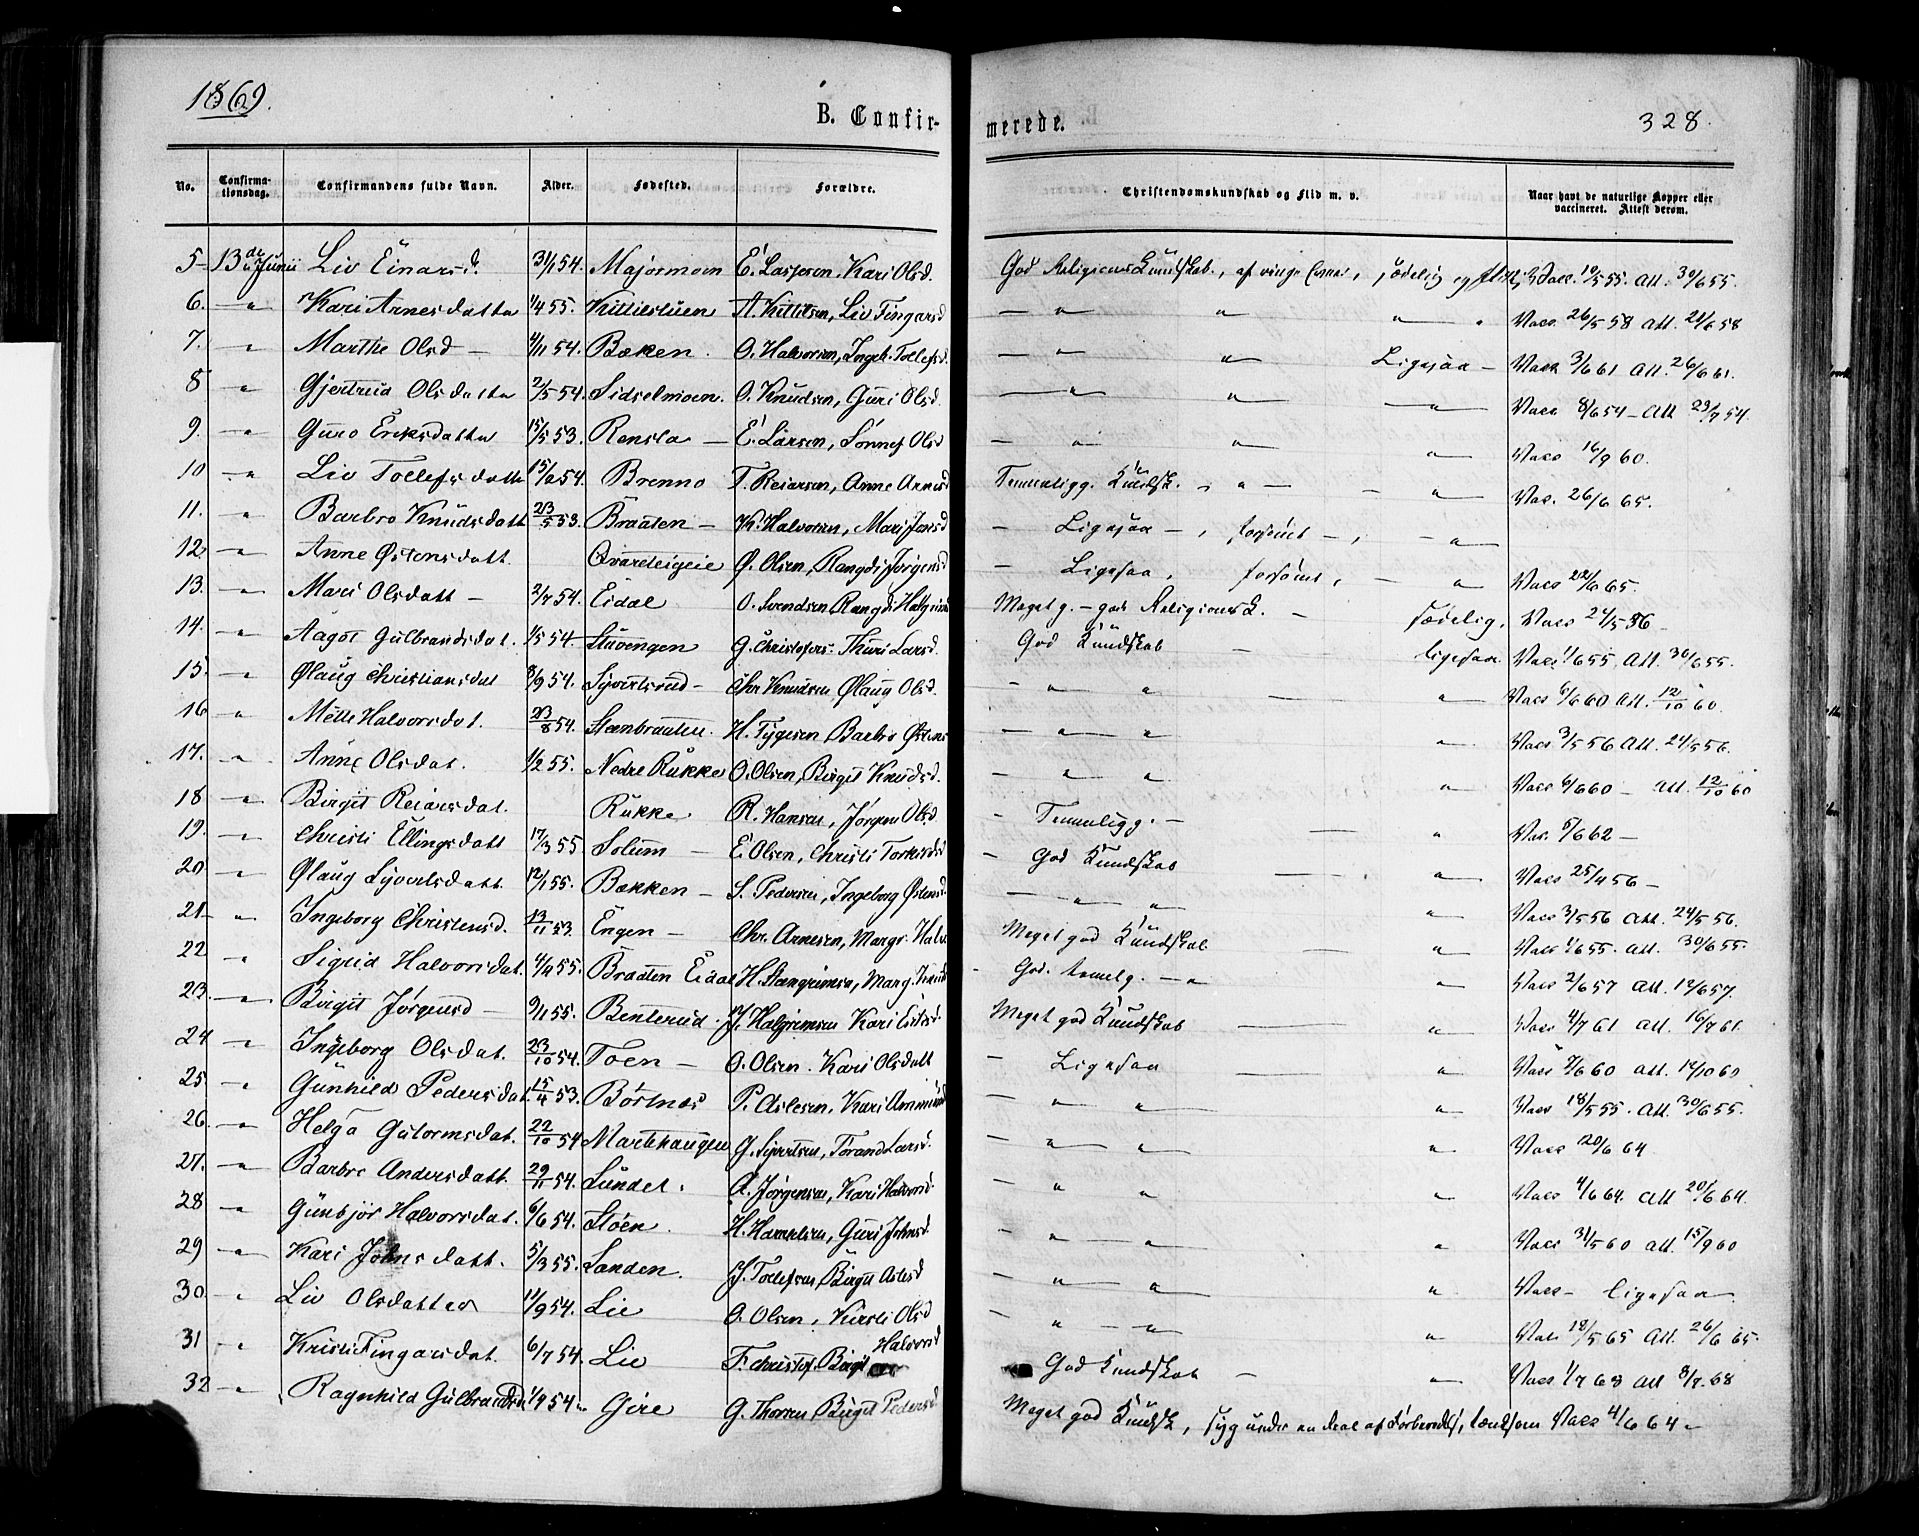 1869.
B. Confir-
merede.
328.
No. Confirma-tionsdag. Confirmandens fulde Navn. Alder. Fødested. Forældre. Christendomskundskab og Flid m. v. Naar havt de naturlige Kopper eller vaccineret. Attest derom.
5 13de Junii Liv Einarsd. 31/1 54. Majormoen E. Larsen, Kari Olsd. God Religions Kundskab, af ringe Evner, sædelig og flittig Vacc. 19/5 55. Att. 30/6 55.
6. — " Kari Arnesdatter 1/4 55. Kittilstuen A. Kittilsen, Liv Fingarsd — " " " " Vacc 26/5 58 Att. 21/6 58
7. — " Marthe Olsd — 4/11 54. Bækken. O. Halvorsen, Ingeb. Tollefsd. — " " Ligesaa — Vacc 3/6 61 Att. 26/6 61.
8 — " Gjertrud Olsdatter 2/5 54. Sidselmoen. O. Knudsen, Guri Olsd. — " " " Vacc 8/6 54 — Att 23/7 54.
9. — " Guro Eriksdatter 15/5 53. Rensla — E. Larsen, Sønnef Olsd — " " " Vacc 16/9 60.
10 — " Liv Tollefsdatter 15/2 54. Brenno T. Reiarsen, Anne Arnesd Temmelig g. Kundsk. — " — — " Vac. 26/6 65.
11. — " Barbro Knudsdatt 23/5 53. Braaten — K. Halvorsen, Mari Jonsd — Ligesaa —, forsømt —, — "
12 — " Anne Østensdatt. Qvarteigeie Ø. Olsen, Rangdi Jørgensd — Ligesaa, forsømt, — " Vacc 22/6 65.
13. — " Mari Olsdatt — 2/7 54. Eidal O. Svendsen Rangdi Halgrimsd Meget g. — god Religionsk. — sædelig. Vacc 24/5 56 —
14. — " Aagot Gulbrandsdat. 1/5 54 Stavengen G. Christofers. Thuri Larsd. God Kundskab — ligesaa. Vacc 1/6 55, Att. 30/6 55.
15. — " Ølaug Christiansdat 8/9 54. Syvertsrud — Chr Knudsen Ølaug Olsd. — " " — " Vacc 6/6 60 Att. 12/10 60.
16 " Mette Halvorsdat. 23/8 54. Steenbraaten. H. Tygesen Barbro Østens — " " " Vacc 3/5 56 Att. 24/5 56.
17. — " Anne Olsdat. 1/2 55. Nedre Rukke O. Olsen, Birgit Knudsd. — " " " Vacc 6/6 60 — Att. 12/10 60
18 — " Birgit Reiarsdat. Rukke R. Hansen, Jørgen Olsd — Temmelig g. — — " Vac. 5/6 62 —
19. — " Christi Ellingsdatt 17/3 55. Solum — E. Olsen, Christi Torkildsd — God Kundskab — " Vacc 25/4 56 —
20 — " Ølaug Syvertsdatt. 12/1 55. Bækken — S. Pedersen, Ingeborg Østensd. — " " " Vacc 3/5 56 Att. 24/5 56.
21 — " Ingeborg Christensd. 13/11 53. Engen — Chr. Arnesen, Margr. Halv. Meget god Kundskab — " Vacc 1/6 55. Att. 30/6 55.
22 " Sigrid Halvorsdat. 4/2 55. Braaten Eidal H. Steengrimsen, Marg. Knud God. temelg. — " " Vacc 2/6 57 Att. 12/6 57.
23. — " Birgit Jørgensd — 9/11 55. Benterud. J. Halgrimsen Kari Eriksd. Meget god Kundskab — " Vacc 4/7 61 Att. 16/7 61.
24 — " Ingeborg Olsdat. 23/10 54. Toen — O. Olsen. Kari Olsdatt — Ligesaa — " Vacc 2/6 60 Att. 12/10 60
25. — " Gunhild Pedersdat. 15/4 53. Børtnes P. Aslesen, Kari Ammund — " " " Vacc 18/5 55. Att. 30/6 55.
26. — " Helga Gutormsdat. 22/10 54 Markhaugen G. Syvertsen, Torand Larsd. — " " " Vacc 20/6 64
27. — " Barbro Andersdatt. 29/11 54. Lundet. A. Jørgensen, Kari Halvorsd. " " " Vacc 4/6 64. Att 20/6 64.
28 — " Gunbjør Halvorsdat. 6/6 54. Støen. H. Halvorsen, Guri Johnsd. — " " " Vacc 31/5 60 Att. 15/9 60
29 — " Kari Johnsdatt. 5/3 55. Sanden. J. Tollefsen, Birgit Aslesd — " " " Vacc — ligesaa.
30. — " Liv Olsdatter 14/9 54. Lie O. Olsen, Kirsti Olsd — " — " " Vacc 18/5 65 Att. 26/6 65.
31 " Kristi Fingarsdat. 6/7 54. Lie F. Christof. Birgit Halvorsd God Kundskab — " Vacc 1/7 68 Att 8/7. 68
32 — " Ragnhild Gulbrandsd 1/9 54. Gire G. Thorsen, Birgit Pedersd Meget god Kundsk, syg under en deel af Forberedels, Vacc 4/6 64 —